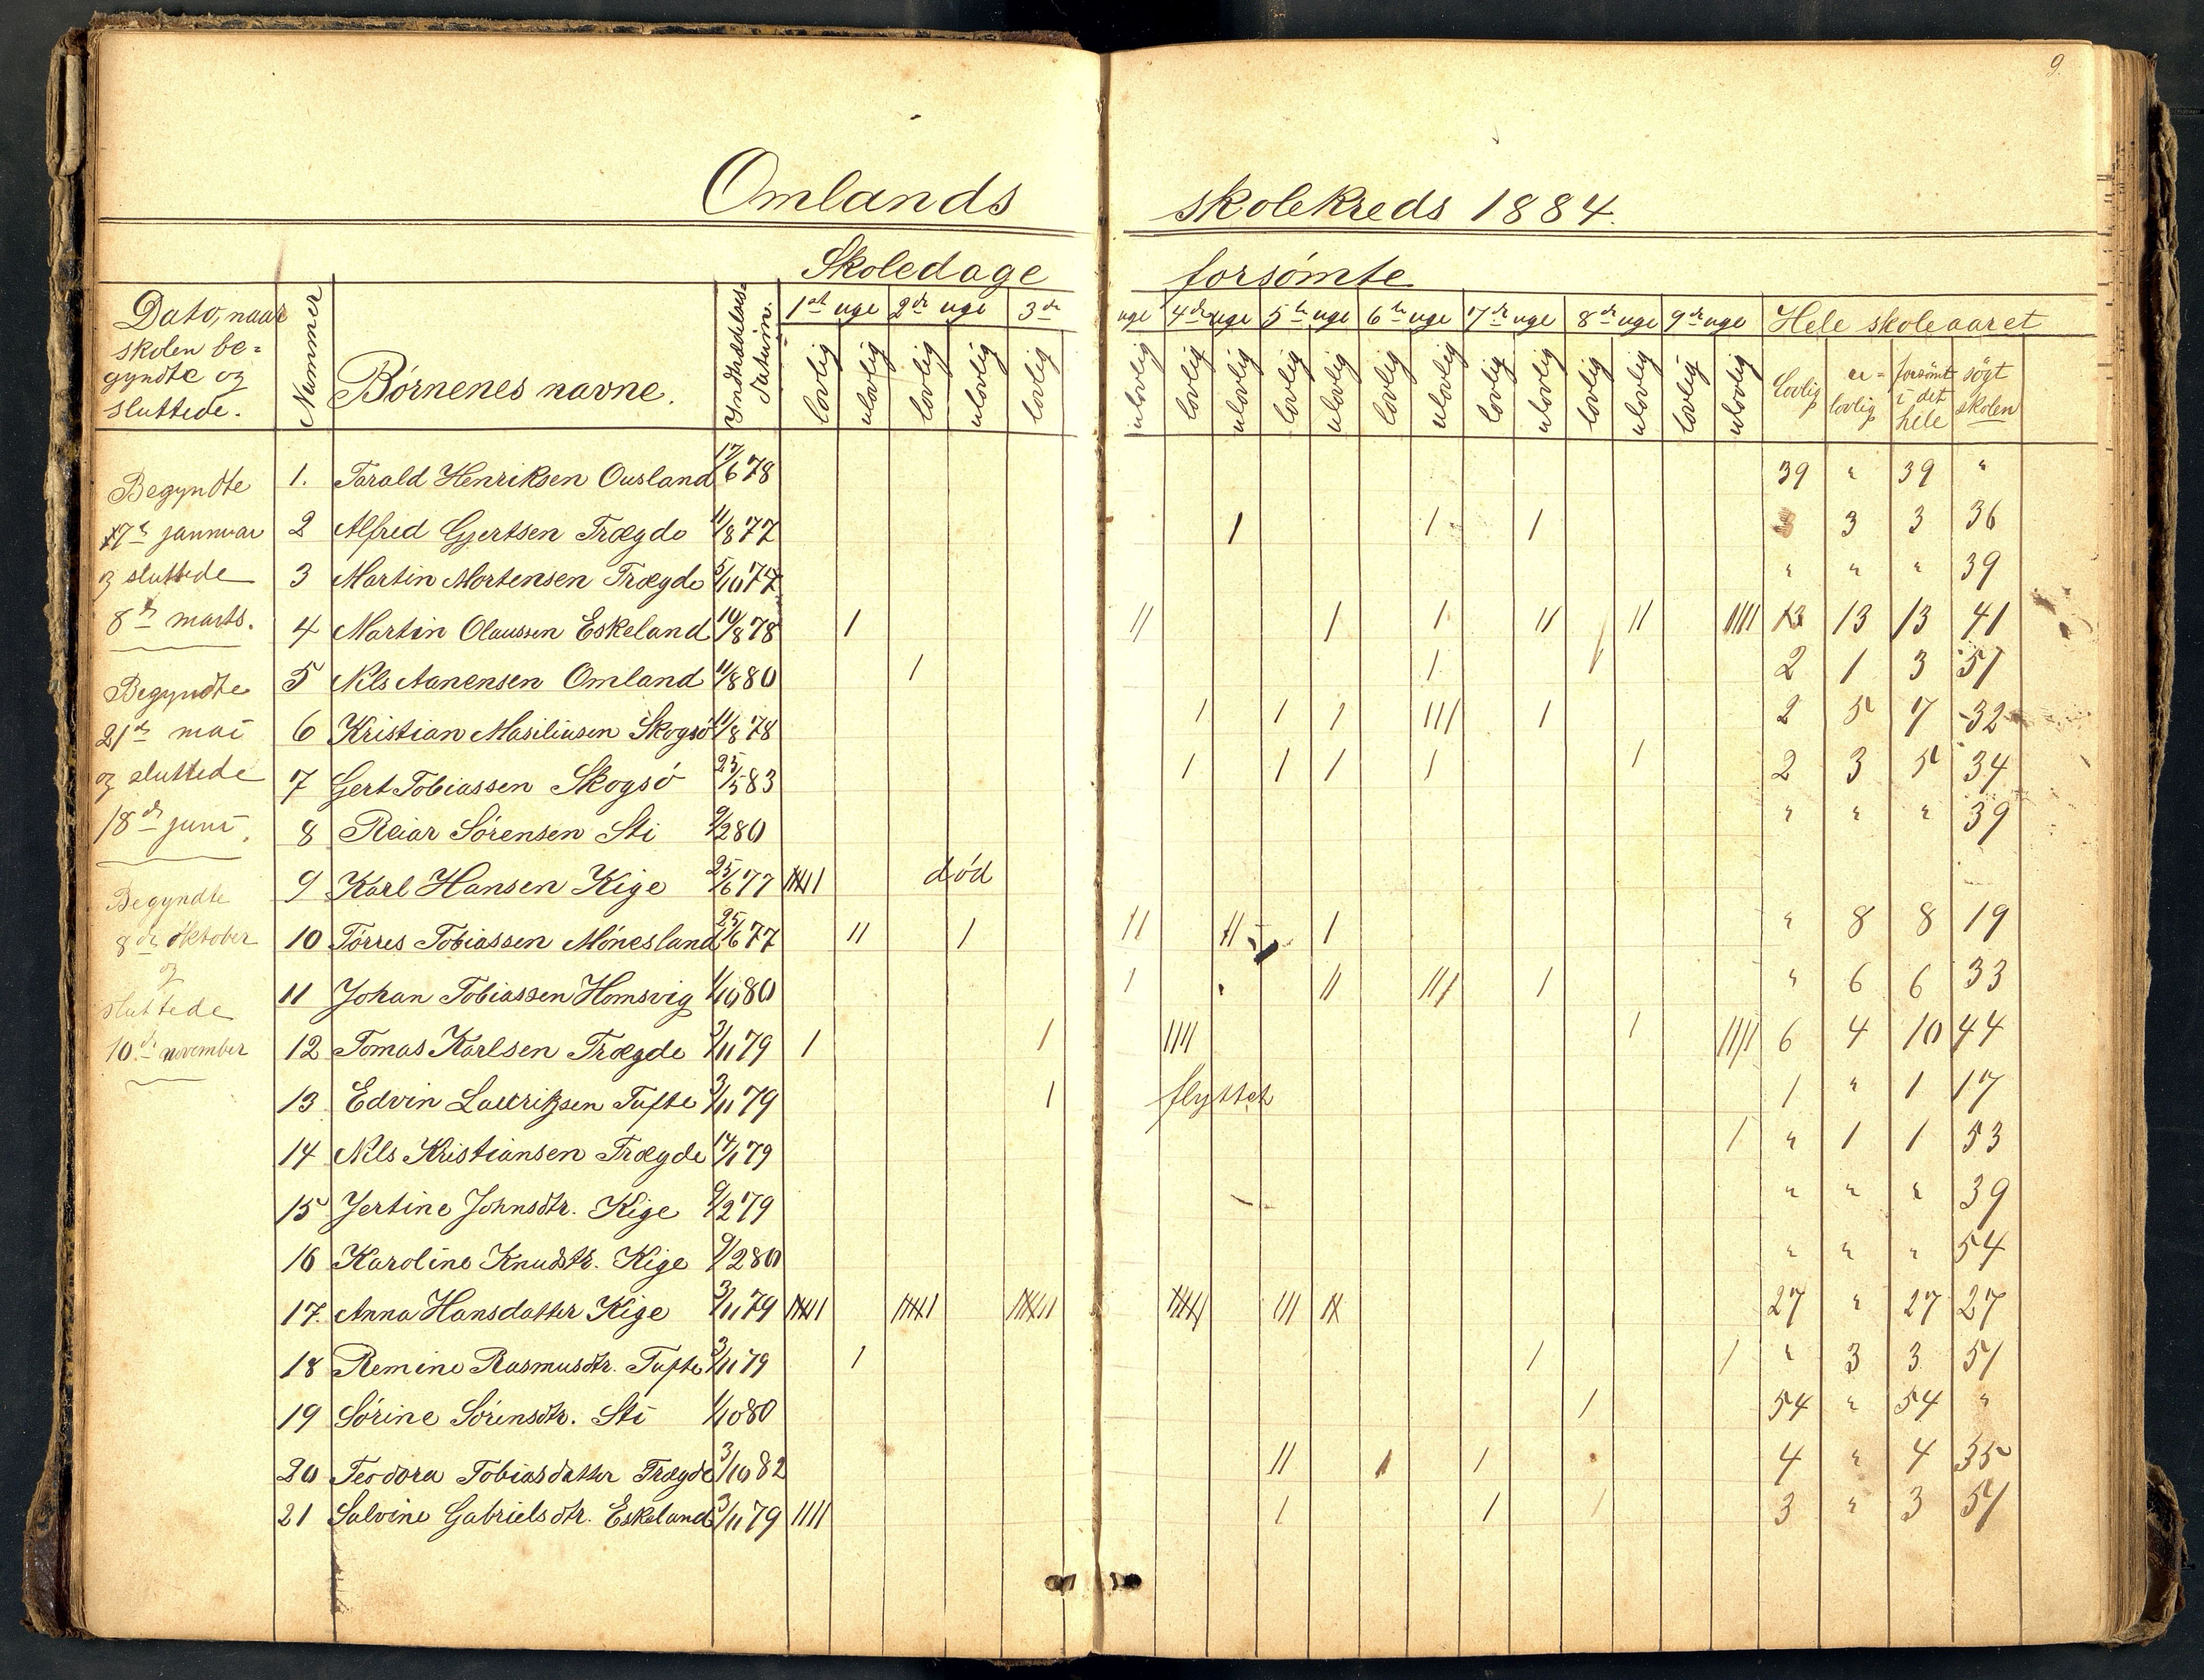 9.
Omlands skolekreds 1884.
Skoledage forsömte
Dato, naar skolen be= gyndte og sluttede.
Nummer
Börnenes navne.
Indtrædelses- datum.
1ste uge 2den uge 3die uge 4de uge 5te uge 6te uge 7de uge 8de uge 9de uge Hele skoleaaret
lovlig ulovlig lovlig ulovlig lovlig ulovlig lovlig ulovlig lovlig ulovlig lovlig ulovlig lovlig ulovlig lovlig ulovlig lovlig ulovlig lovlig u= lovlig forsömt i det hele sögt skolen
Begyndte
17de jannuar
og sluttede
8de marts.
Begyndte
21de mai
og sluttede
18de juni.
Begyndte
8de Oktober
og
sluttede
10de november
1. Tarald Henriksen Ousland 17/6 78 39 " 39 "
2 Alfred Gjertsen Trægde 11/8 77 1 1 1 3 3 3 36
3 Martin Mortensen Trægde 5/10 77 " " " 39
4 Martin Olaussen Eskeland 19/8 78 1 11 1 1 11 11 1111 13 13 13 41
5 Nils Aanensen Omland 11/8 80 1 1 2 1 3 51
6 Kristian Masiliusen Skogsö 11/8 78 1 1 1 111 1 2 5 7 32
7 Gert Tobiassen Skogsö 25/5 83 1 1 1 1 1 2 3 5 34
8 Reiar Sörensen Sti 9/2 80 " " " 39
9 Karl Hansen Kige 25/6 77 död
10 Törres Tobiassen Mönesland 25/6 77 11 1 11 11 1 " 8 8 19
11 Johan Tobiassen Homsvig 1/10 80 1 11 111 1 " 6 6 33
12 Tomas Karlsen Trægde 3/11 79 1 1 1111 1 1111 6 4 10 44
13 Edvin Lauritzsen Tufte 3/11 79 1 flyttet 1 " 1 17
14 Nils Kristiansen Trægde 14/1 79 1 " 1 1 53
15 Jertine Johnsdtr. Kige 9/2 79 " " " 39
16 Karoline Knudstr. Kige 9/2 80 " " " 54
17. Anna Hansdatter Kige 3/11 79 27 " 27 27
18 Remine Rasmusdtr. Tufte 3/11 79 1 1 1 " 3 3 51
19 Sörine Sörensdtr. Sti 1/10 80 1 54 " 54 "
20 Teodora Tobiasdatter Trægde 3/10 82 11 1 1 4 " 4 35
21 Salvine Gabrielsdtr. Eskeland 3/11 79 1111 1 1 1 3 " 3 51